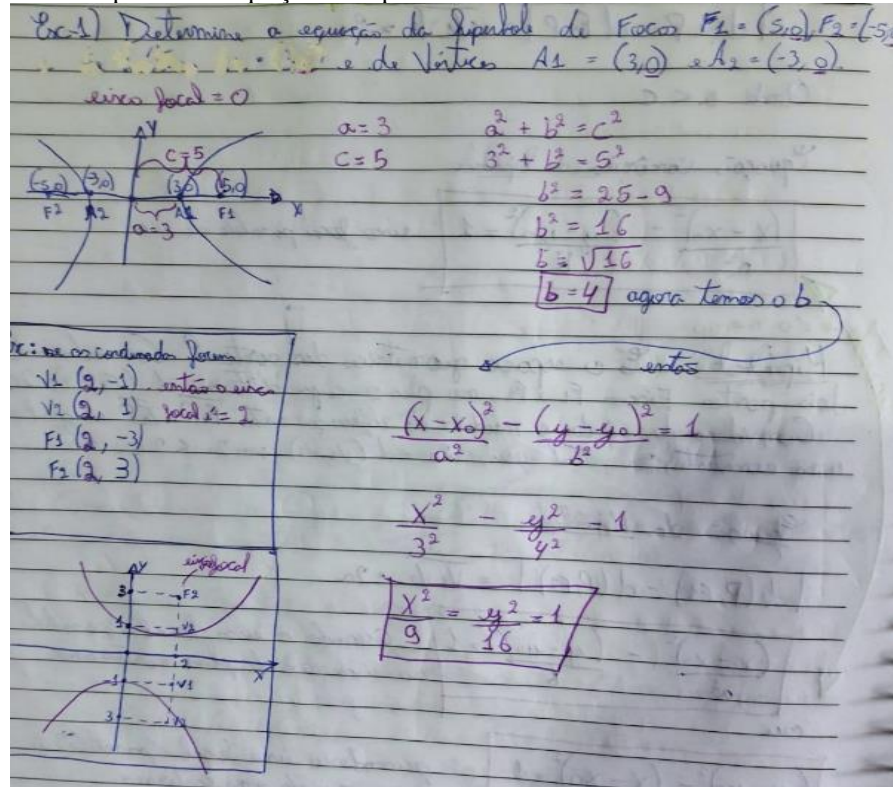 Exc-1) Determine a equação da Hiperbole de Focos F1 = (5,0), F2 = (-5,
e de Vértices A1 = (3,0) e A2 = (-3, 0).
eixo focal = 0
Y
C=5
(-5,0) (-3,0) (3,0) (5,0)
F2 A2 A1 F1 X
a=3
a = 3
C = 5
a² + b² = c²
3² + b² = 5²
b² = 25 - 9
b² = 16
b = √16
b = 4 agora temos o b
então
(x - x₀)² / a² - (y - y₀)² / b² = 1
X² / 3² - y² / 4² = 1
X² / 9 = y² / 16 = 1
: se as coordenadas forem
V1 (2, -1) então o eixo
V2 (2, 1) focal é = 2
F1 (2, -3)
F2 (2, 3)
Y eixo focal
3 F2
1 V2
2 X
-1 V1
3